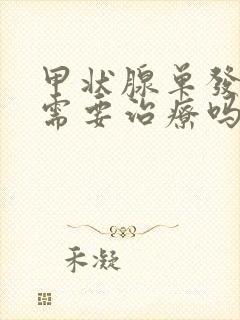 甲状腺单發
需要治療吗
禾凝